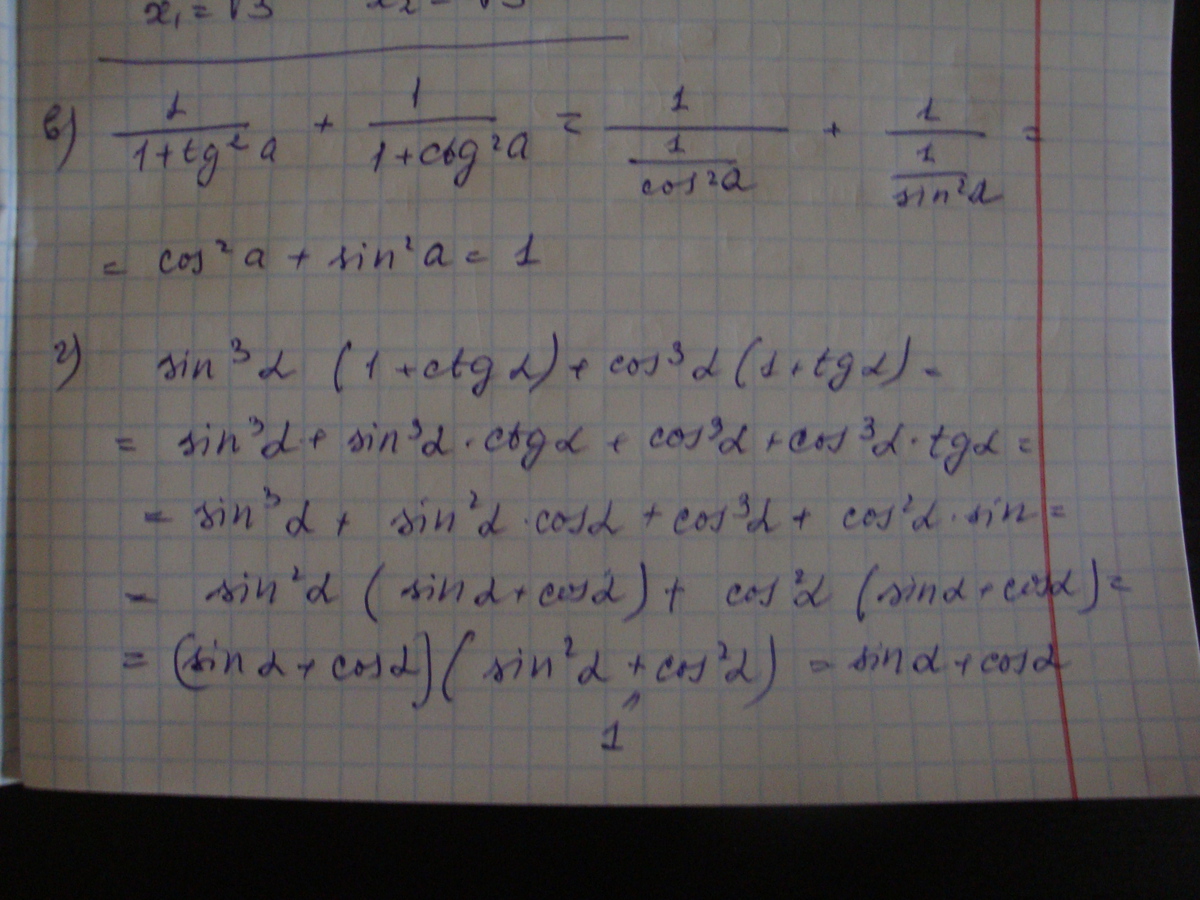 x₁ = √3 x₂ = √3
в) 1/(1+tg²a) + 1/(1+ctg²a) = 1/(1/cos²α) + 1/(1/sin²α) =
= cos²a + sin²a = 1
г) sin³α (1+ctgα) + cos³α (1+tgα) =
= sin³α + sin³α · ctgα + cos³α + cos³α · tgα =
= sin³α + sin²α · cosα + cos³α + cos²α · sin =
= sin²α (sinα + cosα) + cos²α (sinα + cosα) =
= (sinα + cosα)(sin²α + cos²α) = sinα + cosα
1